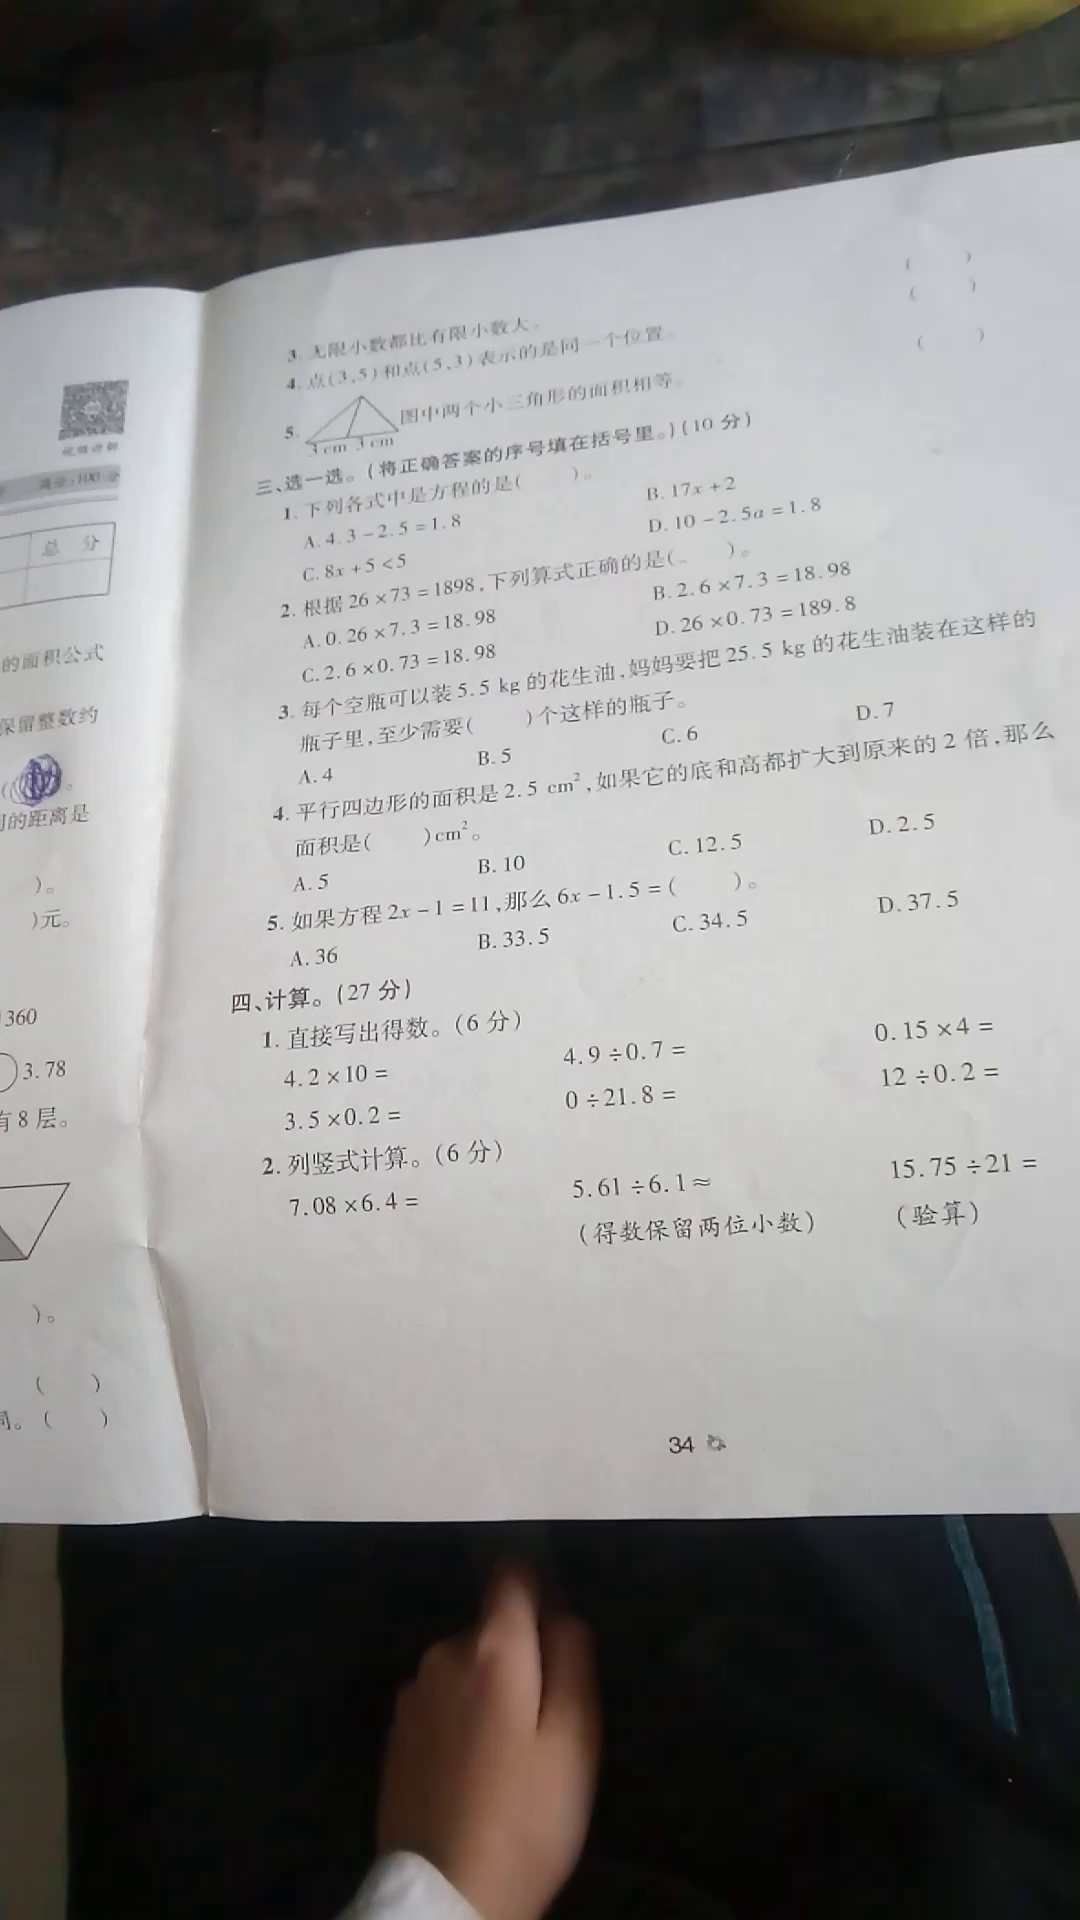 视频讲解
满分:100分
总 分
的面积公式
保留整数约
(
)。
的距离是
)。
)元。
360
3.78
有8层。
)。
( )
。( )
3. 无限小数都比有限小数大。 ( )
4. 点(3,5)和点(5,3)表示的是同一个位置。 ( )
5. 图中两个小三角形的面积相等。 ( )
3 cm 3 cm
三、选一选。(将正确答案的序号填在括号里。)(10 分)
1. 下列各式中是方程的是( )。
A. 4.3-2.5=1.8 B. 17x+2
C. 8x+5<5 D. 10-2.5a=1.8
2. 根据 26×73=1898,下列算式正确的是( )。
A. 0.26×7.3=18.98 B. 2.6×7.3=18.98
C. 2.6×0.73=18.98 D. 26×0.73=189.8
3. 每个空瓶可以装 5.5 kg 的花生油,妈妈要把 25.5 kg 的花生油装在这样的
瓶子里,至少需要( )个这样的瓶子。
A. 4 B. 5 C. 6 D. 7
4. 平行四边形的面积是 2.5 cm²,如果它的底和高都扩大到原来的 2 倍,那么
面积是( )cm²。
A. 5 B. 10 C. 12.5 D. 2.5
5. 如果方程 2x-1=11,那么 6x-1.5=( )。
A. 36 B. 33.5 C. 34.5 D. 37.5
四、计算。(27 分)
1. 直接写出得数。(6 分)
4.2×10= 4.9÷0.7= 0.15×4=
3.5×0.2= 0÷21.8= 12÷0.2=
2. 列竖式计算。(6 分)
7.08×6.4= 5.61÷6.1≈ 15.75÷21=
(得数保留两位小数) (验算)
34